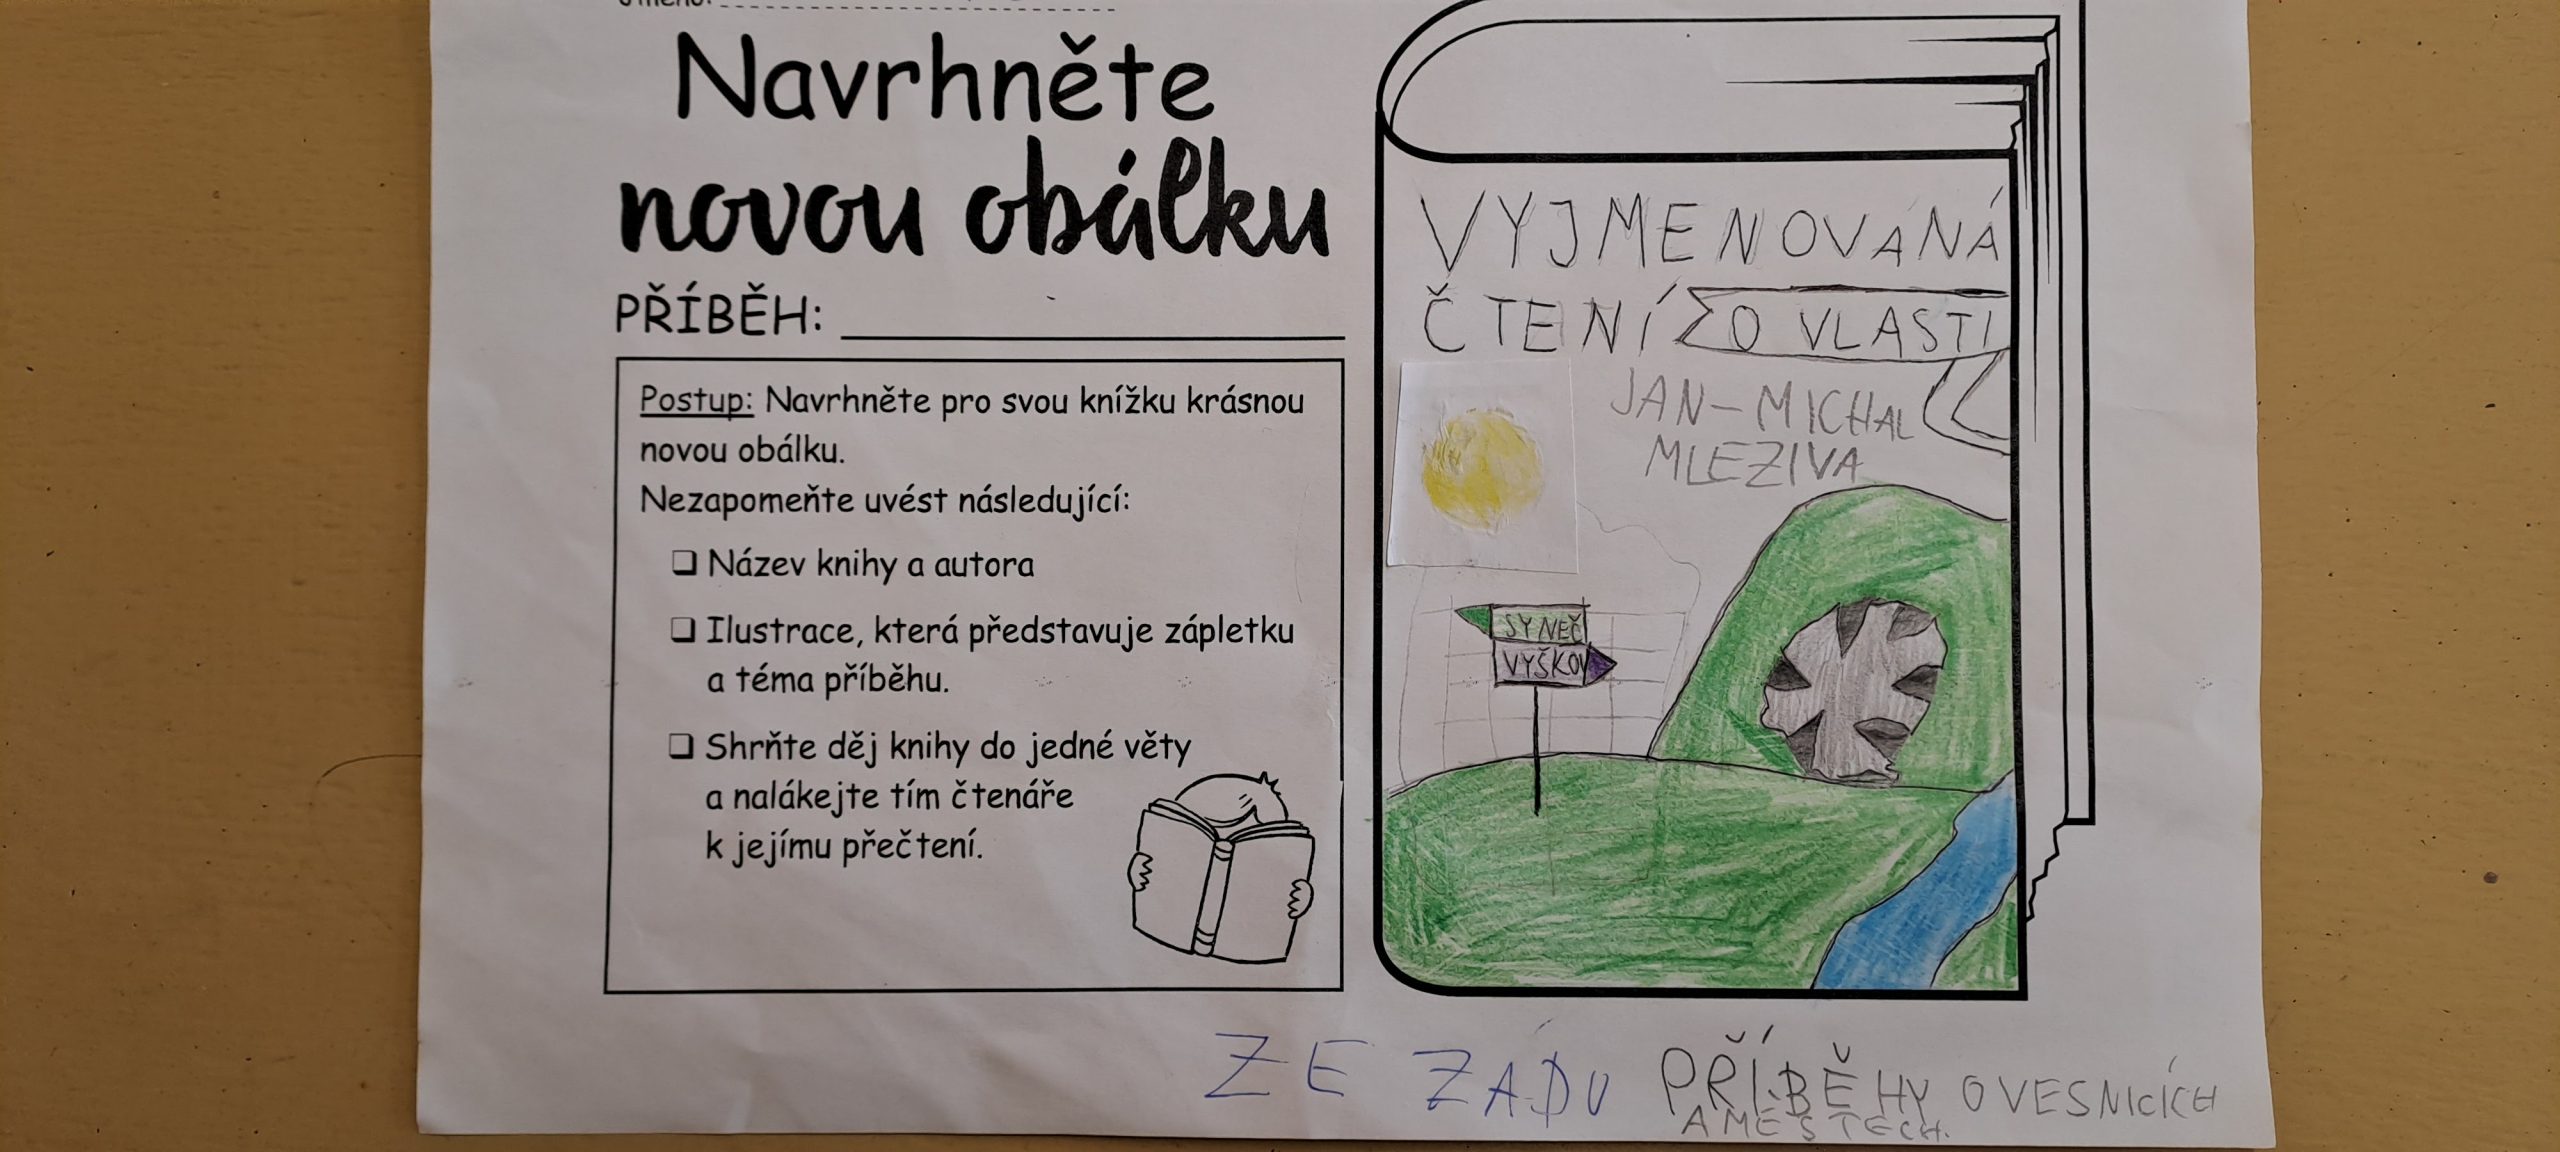 Jméno:
Navrhněte
novou obálku
PŘÍBĚH:
Postup: Navrhněte pro svou knížku krásnou
novou obálku.
Nezapomeňte uvést následující:
Název knihy a autora
Ilustrace, která představuje zápletku
a téma příběhu.
Shrňte děj knihy do jedné věty
a nalákejte tím čtenáře
k jejímu přečtení.
VYJMENOVANÁ
ČTENÍ O VLASTI
JAN-MICHAL
MLEZIVA
SYNEČ
VYŠKOV
ZE ZÁDU PŘÍBĚHY O VESNICÍCH
A MĚSTECH.